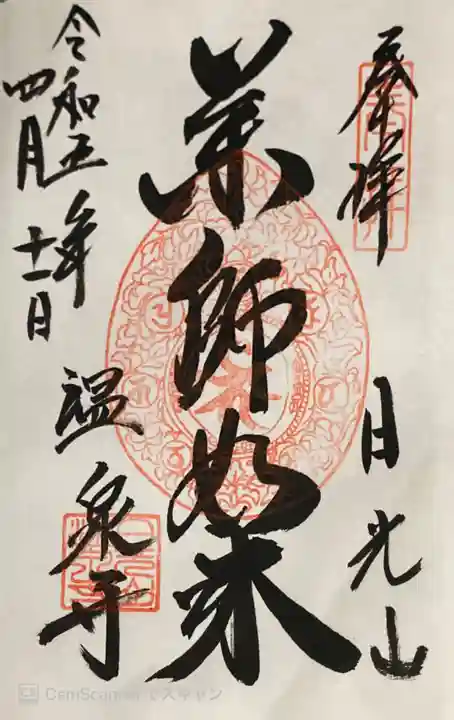 奉拝
日光山
薬師如来
令和五年
四月十一日
温泉寺
CamScannerでスキャン